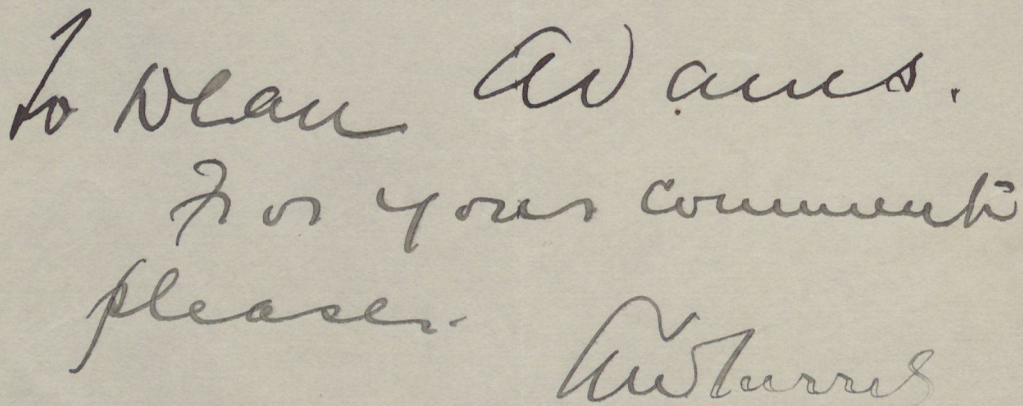 To Dean Adams.
For your comments
please.